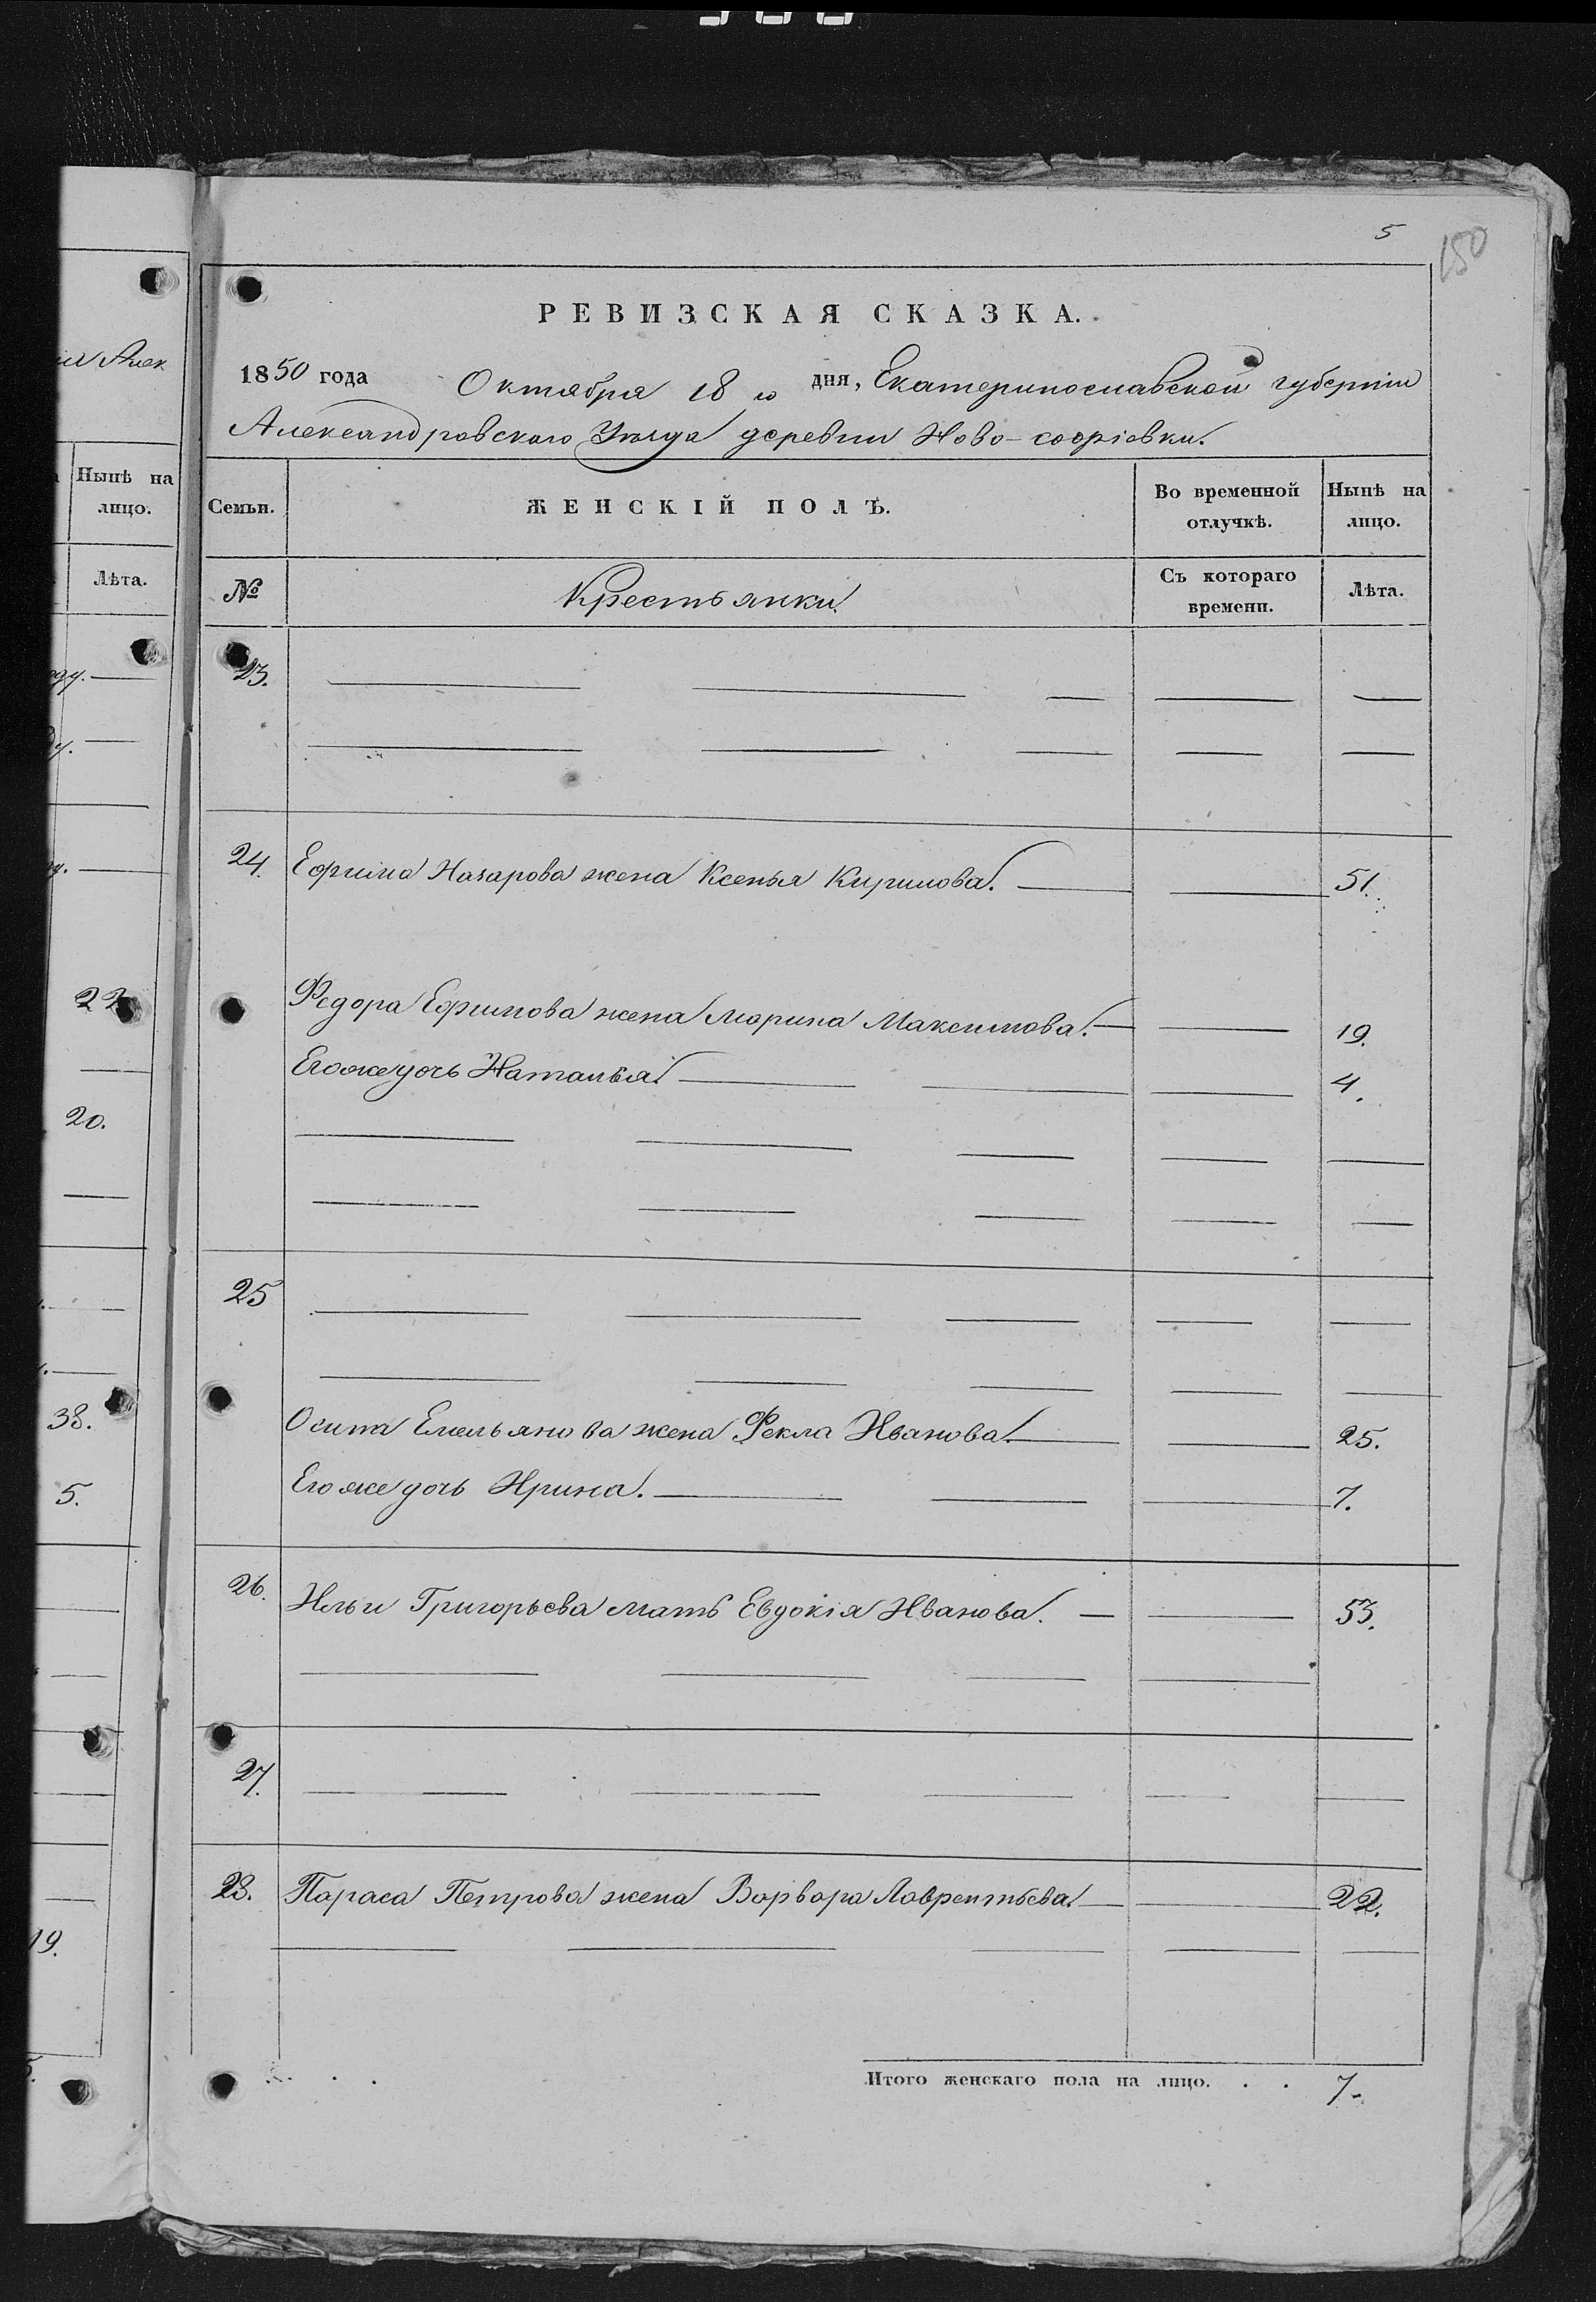 5
150
РЕВИЗСКАЯ СКАЗКА.
1850 года Октября 18 го дня, Екатеринославской губернiи
Александровскаго Уѣзда деревни Ново-софiовки.
Семьи. ЖЕНСКIЙ ПОЛЪ. Во временной отлучкѣ. Нынѣ на лицо.
№ Крестьянки. Съ котораго времени. Лѣта.
23.
24. Ефима Назарова жена Ксенья Кирилова. 51.
Федора Ефимова жена Марина Максимова. 19.
Егоже дочь Наталья. 4.
25
Осипа Емельянова жена Фекла Иванова. 25.
Егоже дочь Ирина. 7.
26. Ильи Григорьева мать Евдокiя Иванова. 53.
27.
28. Тараса Петрова жена Варвара Лаврентьева. 22.
Итого женскаго пола на лицо. . . 7
Алек
Нынѣ на
лицо.
Лѣта.
22
20.
38.
5.
19.